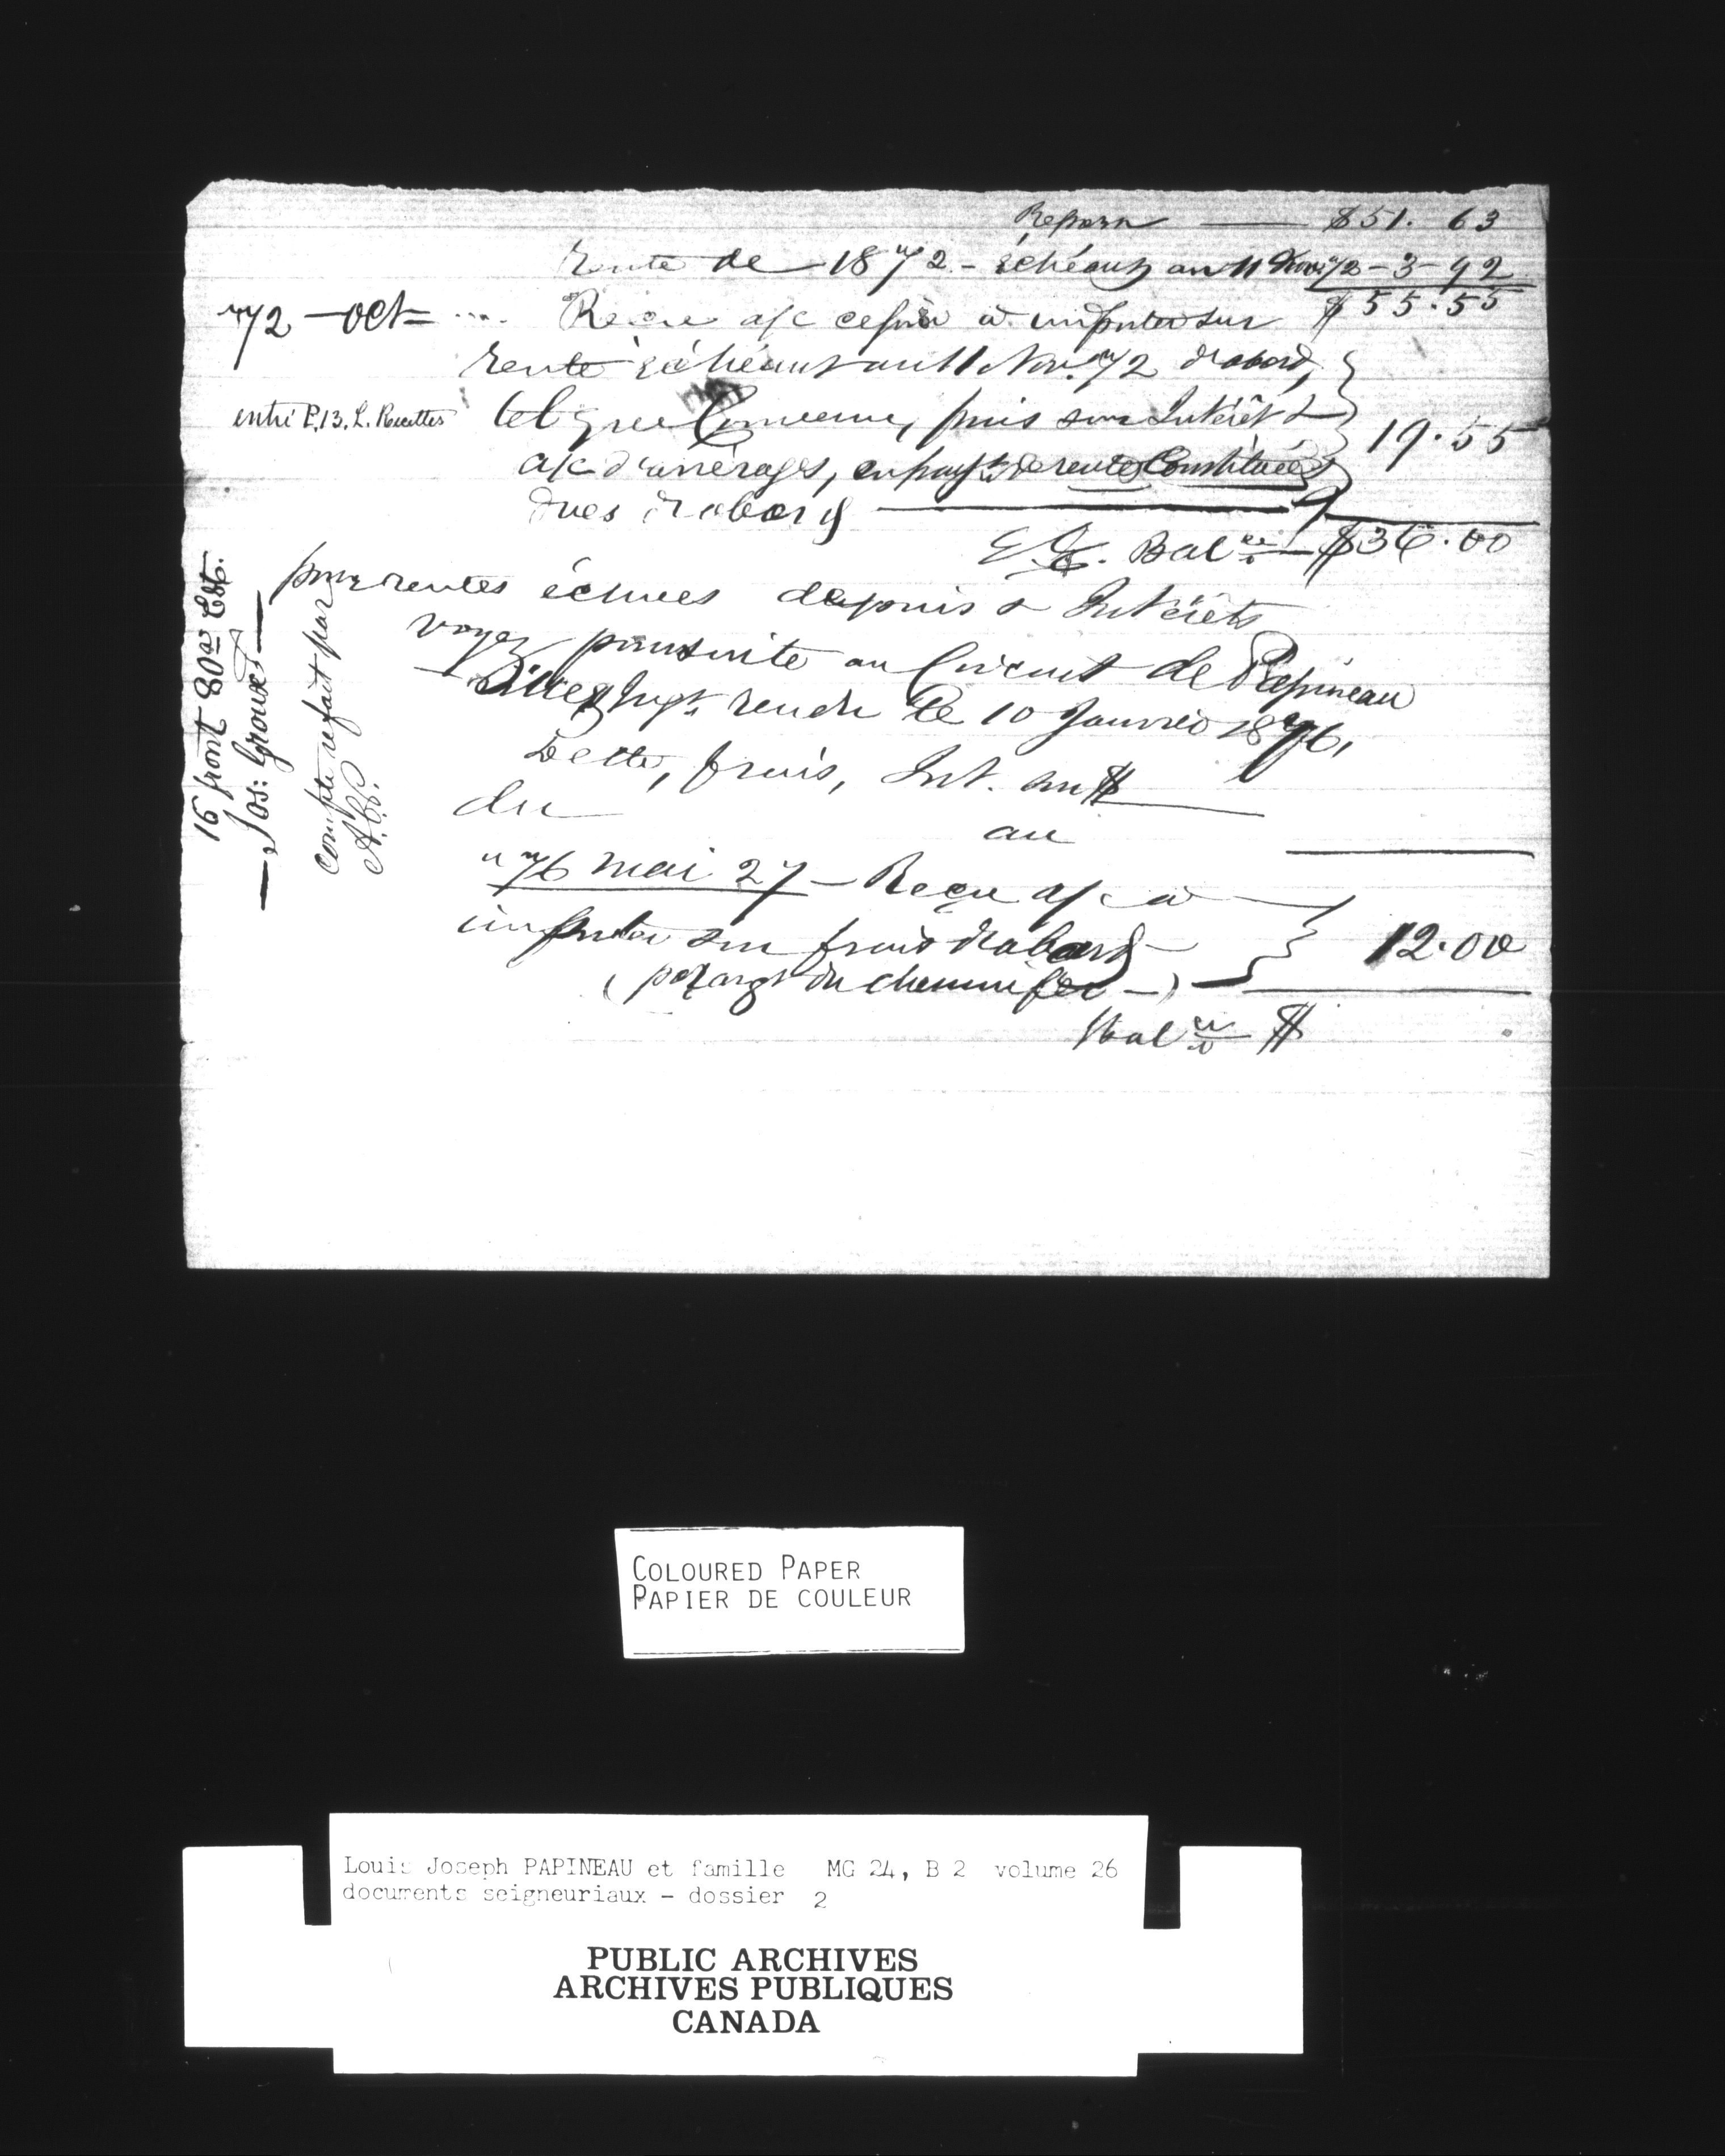 Report — $51. 63
Rente de 1872 - échéant au 11 Nov. 72 - 3 - 92
72 - Oct - .... Reçu a/c à imputer sur $55.55
rente échéant au 11 Nov. 72 d'abord,
entré P. 13. L. Recettes tel que Convenu, puis sur Intérêt & 19.55
a/c d'arrérages, en payt. de rentes Constituées
dues d'abord —
E. E. Balce — $36.00
pour rentes échues depuis & Intérêts
voyez poursuite au Circuit de Papineau
Jugt. rendu le 10 Janvier 1876,
Dette, frais, Int. sur $
du
au
" 76 mai 27 - Reçu a/c à
imputer sur frais d'abord - 12.00
( argt du chemin fer - )
Balce $
16 front 80ar Est.
— Jos: Groulx —
compte refait par
COLOURED PAPER
PAPIER DE COULEUR
Louis Joseph PAPINEAU et famille MG 24, B 2 volume 26
documents seigneuriaux - dossier 2
PUBLIC ARCHIVES
ARCHIVES PUBLIQUES
CANADA